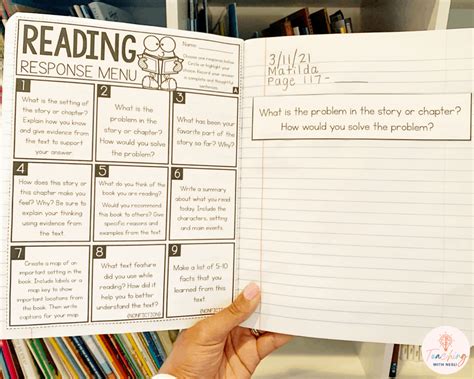 READING
RESPONSE MENU
Name:
Choose one response below.
Circle or highlight your
choice. Record your answer
in complete and thoughtful
sentences.
1
What is the setting of
the story or chapter?
Explain how you know
and give evidence from
the text to support
your answer.
2
What is the
problem in the story
or chapter? How
would you solve the
problem?
3
What has been your
favorite part of the
story so far? Why?
4
How does this story or
this chapter make you
feel? Why? Be sure to
explain your thinking
using evidence from
the text.
5
What do you think of the
book you are reading?
Would you recommend
this book to others? Give
specific reasons and
examples from the text.
6
Write a summary
about what you read
today. Include the
characters, setting
and main events.
7
Create a map of an
important setting in the
book. Include labels or
a map key to show
important locations from
the book. Then write
captions for your map.
8
What text feature
did you use while
reading? How did it
help you to better
understand the text?
(NONFICTION)
9
Make a list of 5-10
facts that you
learned from this
text.
(NONFICTION)
3/11/21
Matilda
Page 117-
What is the problem in the story or chapter?
How would you solve the problem?
Teaching
WITH NESLI